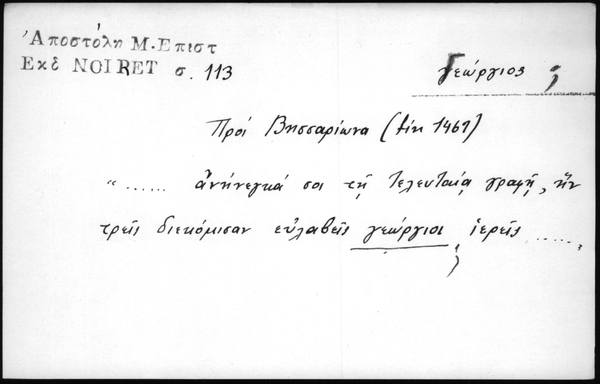 Ἀποστόλη Μ. Επιστ
Εκδ NOIRET σ. 113
Γεώργιος ;
Πρός Βησσαρίωνα (1467)
“ ...... ἀνήνεγκά σοι τῇ τελευταίᾳ γραφῇ, ἣν
τρεῖς διεκόμισαν εὐλαβεῖς γεώργιοι ἱερεῖς ......,
;